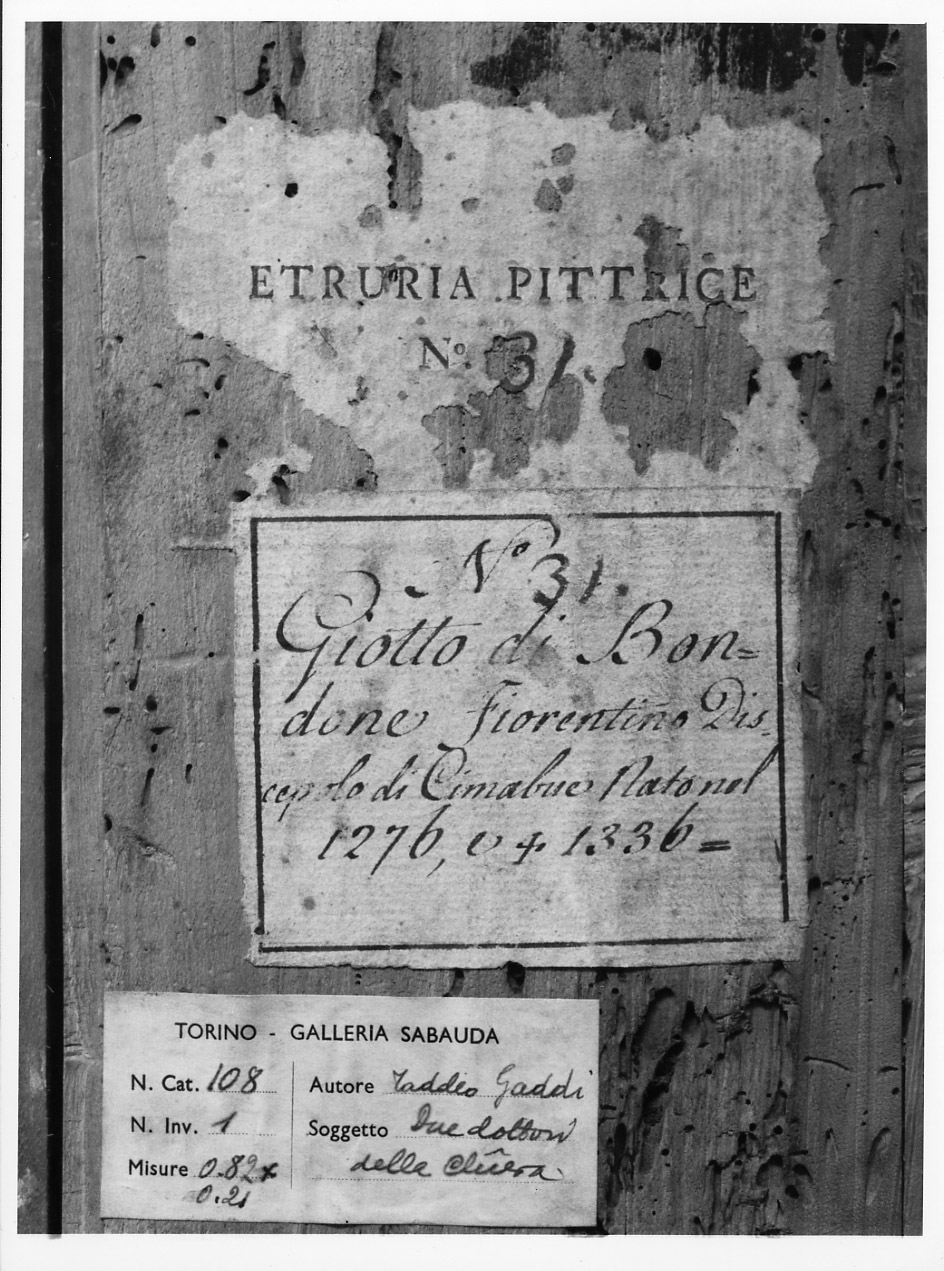 ETRURIA PITTRICE
Nº. 31.
Nº 31.
Giotto di Bon=
done Fiorentino Dis.
cepolo di Cimabue Nato nel
1276, e + 1336=
TORINO - GALLERIA SABAUDA
N. Cat. 108
Autore Taddeo Gaddi
N. Inv. 1
Soggetto Due dottori
della Chiesa
Misure 0.82x
0.21